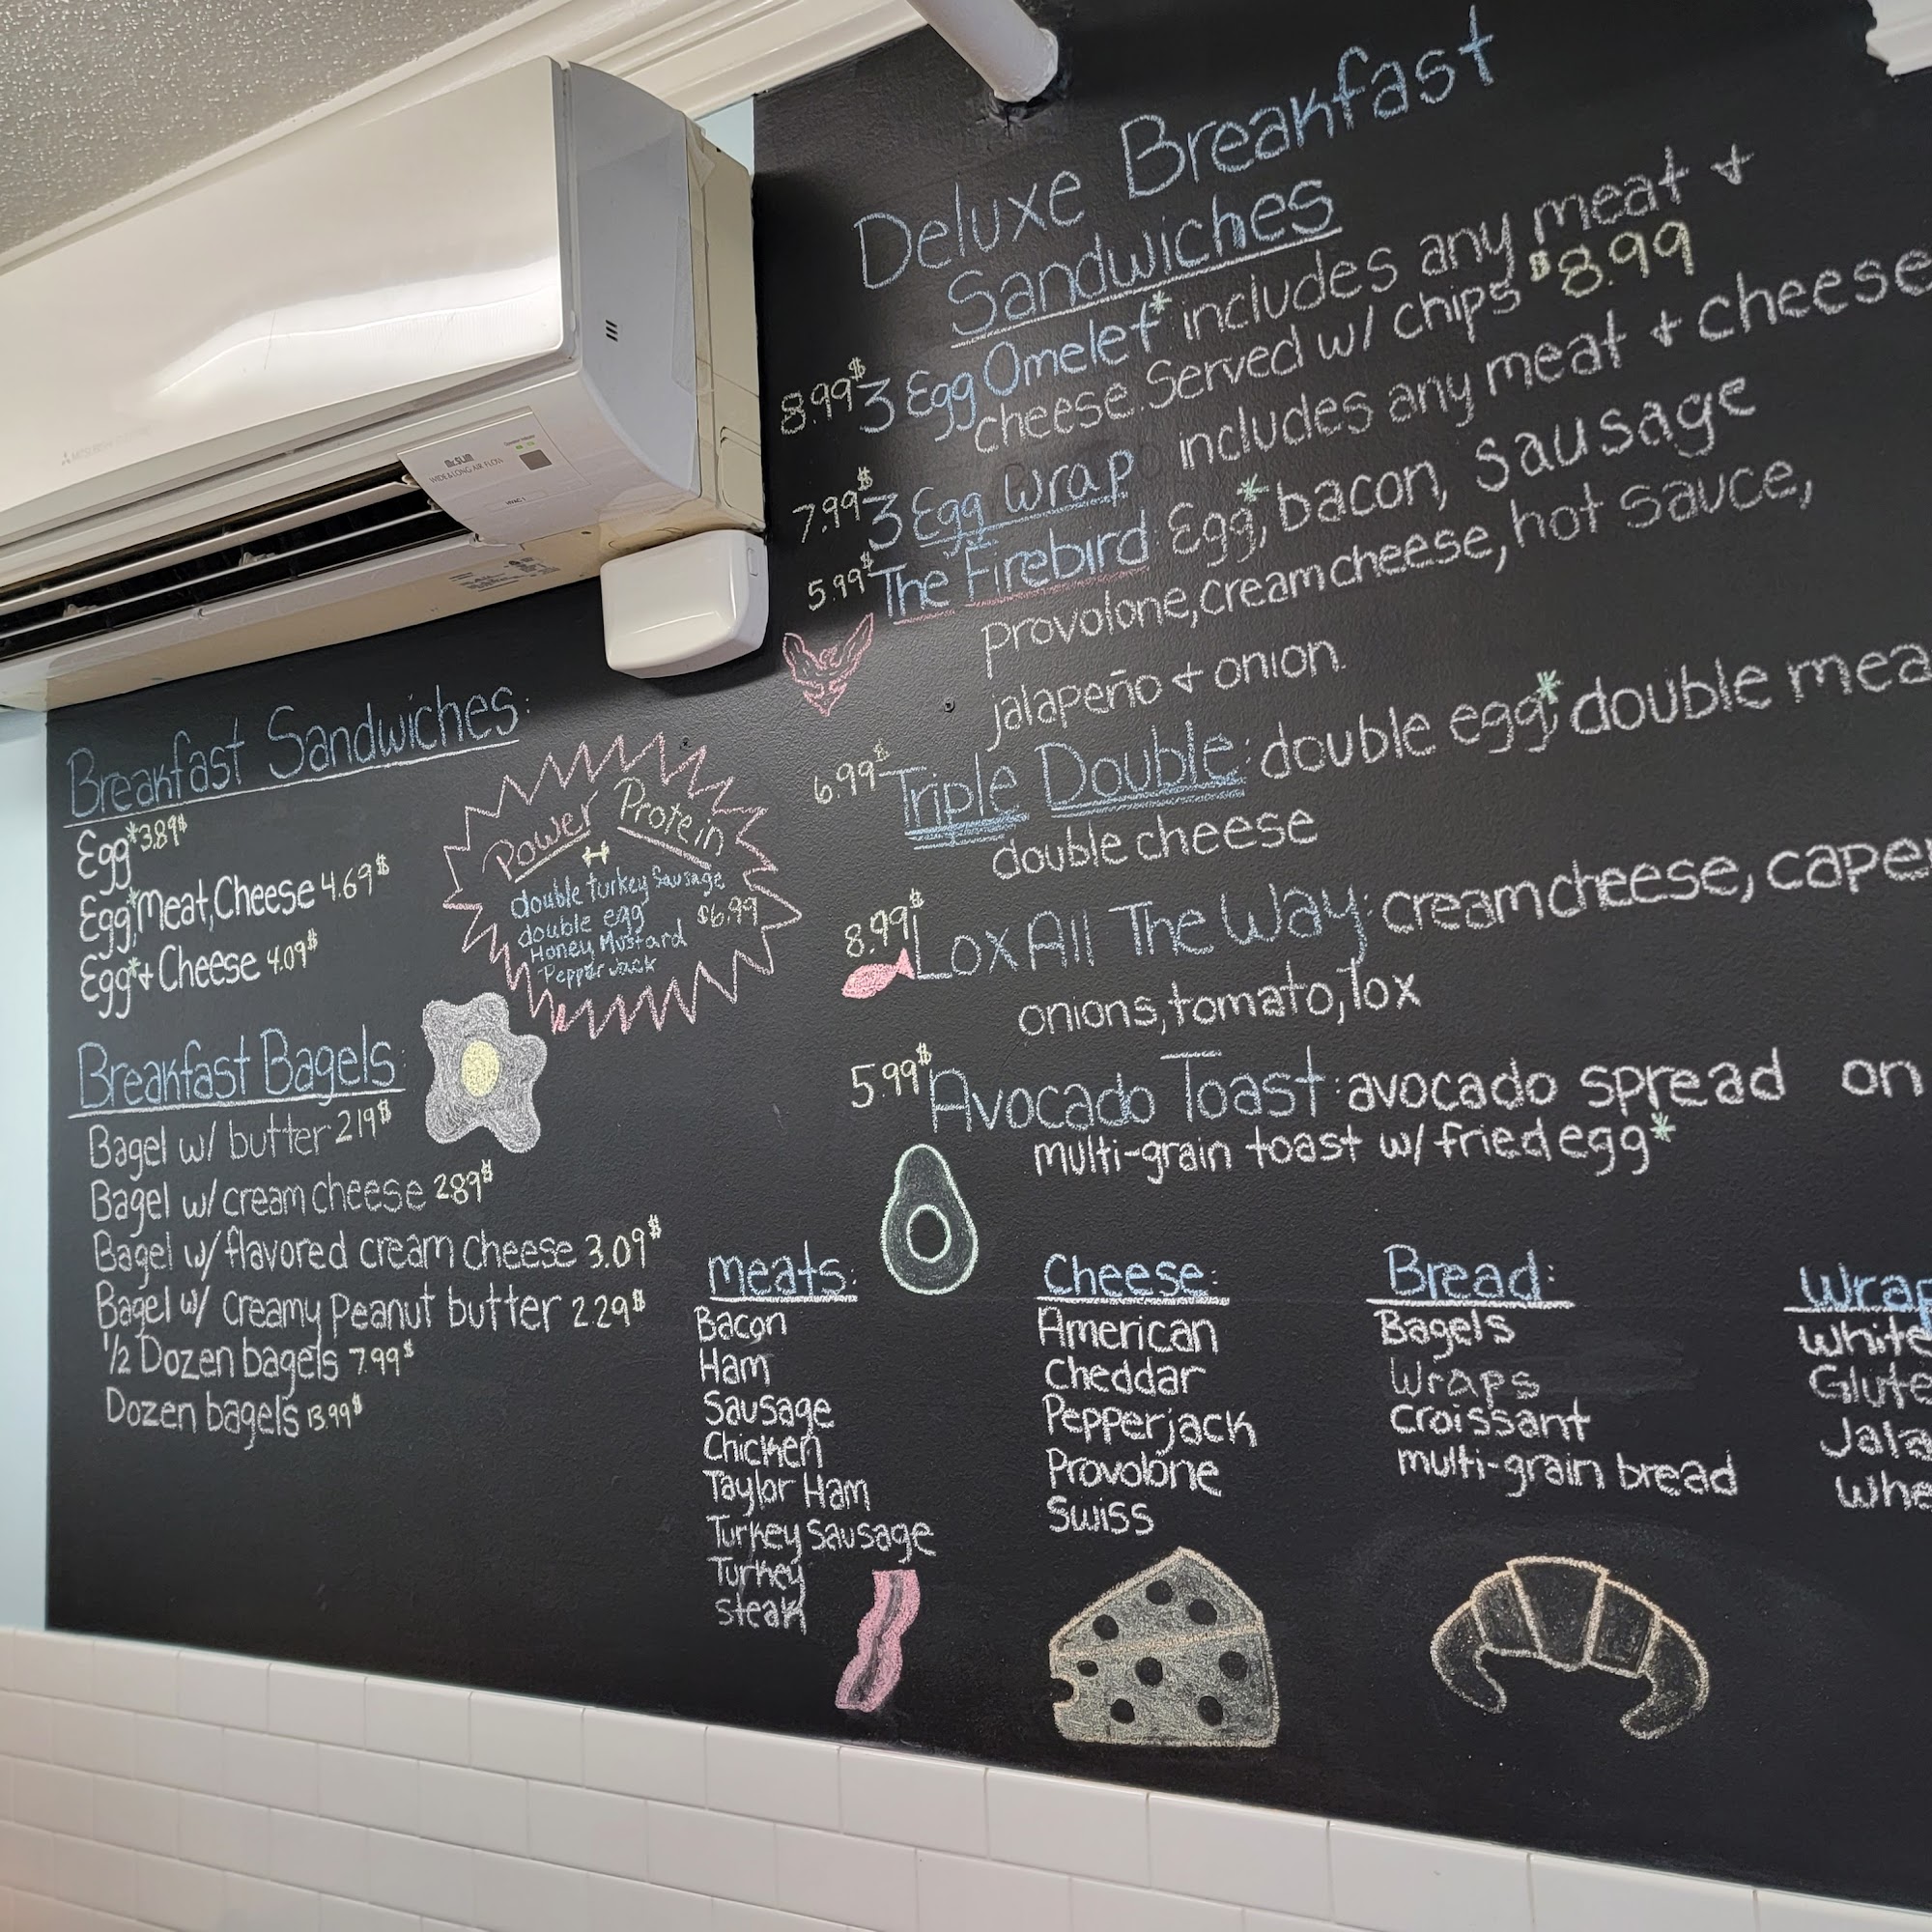 Deluxe Breakfast
Sandwiches
8.99$ 3 Egg Omelet* includes any meat +
cheese. Served w/ chips $8.99
7.99$ 3 Egg Wrap includes any meat + cheese
5.99$ The Firebird Egg*, bacon, sausage
Provolone, cream cheese, hot sauce,
jalapeño + onion.
6.99$ Triple Double: double egg*, double mea
double cheese
8.99$ Lox All The Way: cream cheese, caper
onions, tomato, lox
5.99$ Avocado Toast: avocado spread on
multi-grain toast w/ fried egg*
Mr.SLIM
WIDE & LONG AIR FLOW
HVAC 1
Breakfast Sandwiches:
Egg* 3.89$
Egg*, Meat, Cheese 4.69$
Egg* + Cheese 4.09$
Power Protein
double turkey Sausage
double egg $6.99
Honey Mustard
Pepper Jack
Breakfast Bagels:
Bagel w/ butter 2.19$
Bagel w/ cream cheese 2.89$
Bagel w/ flavored cream cheese 3.09$
Bagel w/ creamy Peanut butter 2.29$
1/2 Dozen bagels 7.99$
Dozen bagels 13.99$
meats:
Bacon
Ham
Sausage
Chicken
Taylor Ham
Turkey Sausage
Turkey
steak
Cheese:
American
Cheddar
Pepperjack
Provolone
Swiss
Bread:
Bagels
Wraps
Croissant
multi-grain bread
Wrap
White
Glute
Jala
Whe